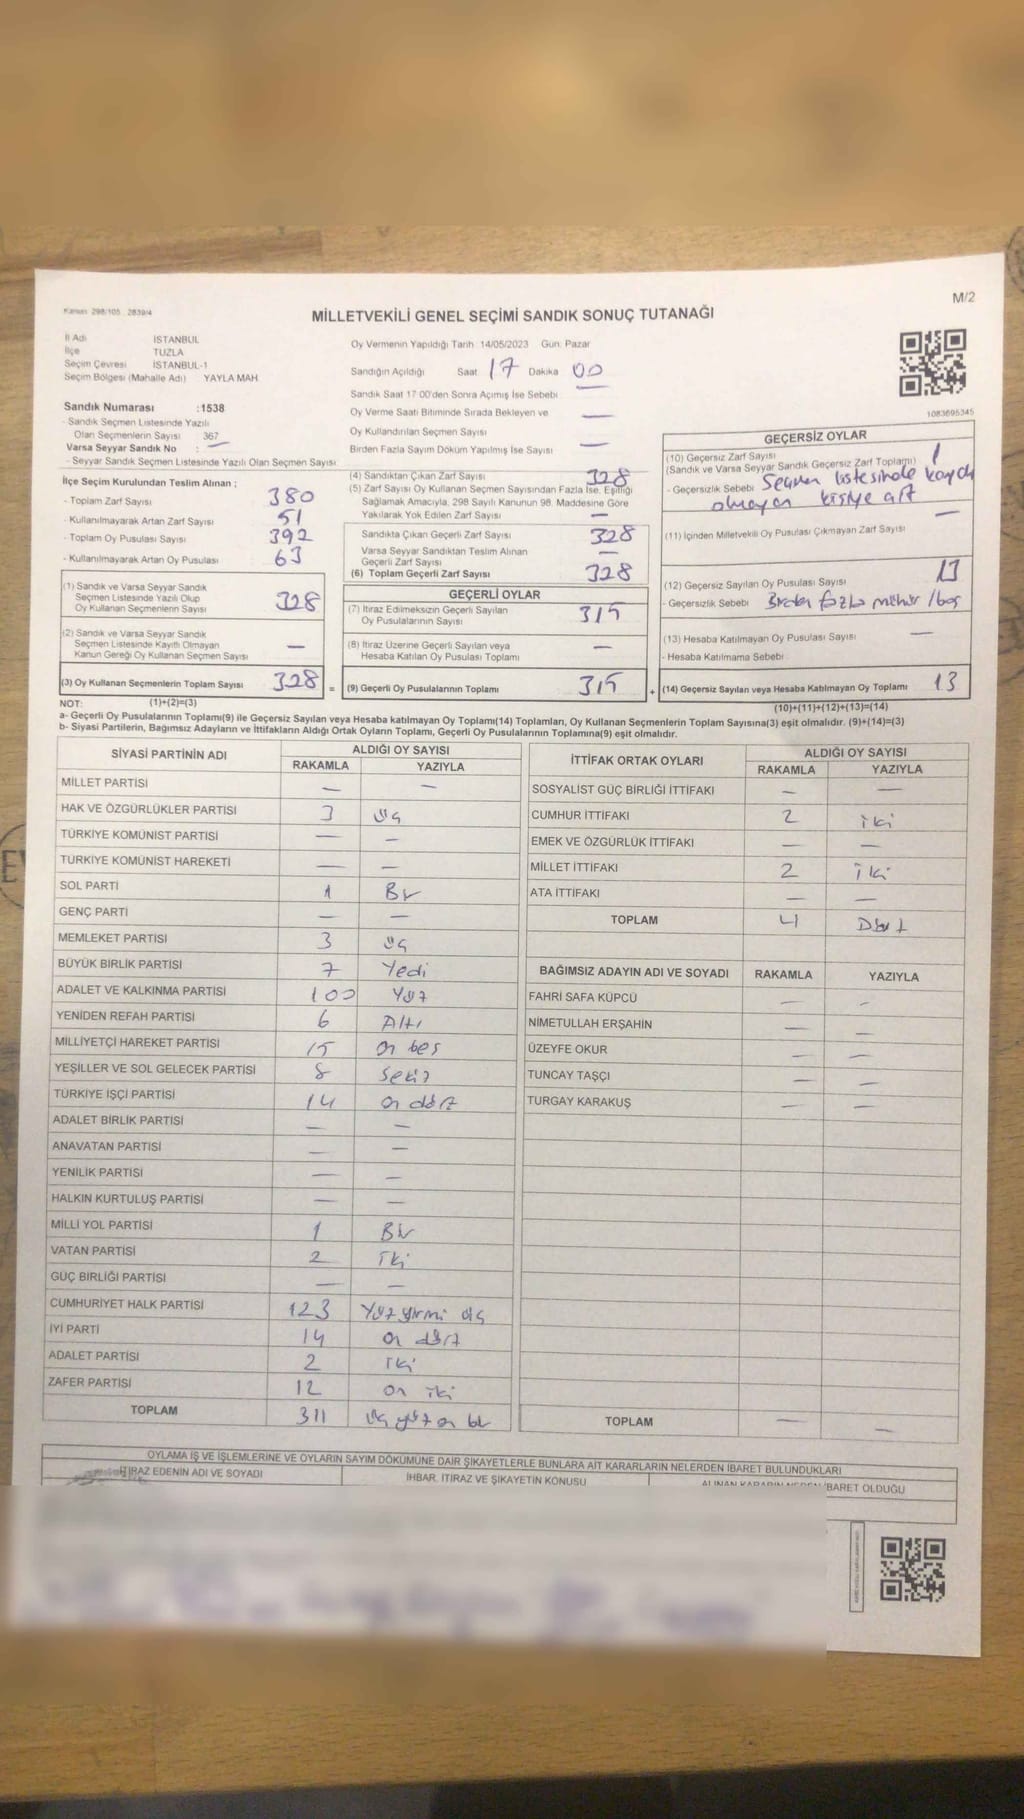 Kanun 298/105 2839/4
M/2
MİLLETVEKİLİ GENEL SEÇİMİ SANDIK SONUÇ TUTANAĞI
İl Adı İSTANBUL
İlçe TUZLA
Seçim Çevresi İSTANBUL-1
Seçim Bölgesi (Mahalle Adı) YAYLA MAH
Sandık Numarası :1538
- Sandık Seçmen Listesinde Yazılı
Olan Seçmenlerin Sayısı 367
Varsa Seyyar Sandık No : —
- Seyyar Sandık Seçmen Listesinde Yazılı Olan Seçmen Sayısı
Oy Vermenin Yapıldığı Tarih 14/05/2023 Gün: Pazar
Sandığın Açıldığı Saat 17 Dakika 00
Sandık Saat 17:00'den Sonra Açımış İse Sebebi —
Oy Verme Saati Bitiminde Sırada Bekleyen ve —
Oy Kullandırılan Seçmen Sayısı
Birden Fazla Sayım Döküm Yapılmış İse Sayısı —
1083695345
İlçe Seçim Kurulundan Teslim Alınan ;
- Toplam Zarf Sayısı 380
- Kullanılmayarak Artan Zarf Sayısı 51
- Toplam Oy Pusulası Sayısı 392
- Kullanılmayarak Artan Oy Pusulası 63
(1) Sandık ve Varsa Seyyar Sandık
Seçmen Listesinde Yazılı Olup
Oy Kullanan Seçmenlerin Sayısı 328
(2) Sandık ve Varsa Seyyar Sandık
Seçmen Listesinde Kayıtlı Olmayan
Kanun Gereği Oy Kullanan Seçmen Sayısı —
(3) Oy Kullanan Seçmenlerin Toplam Sayısı 328 =
(4) Sandıktan Çıkan Zarf Sayısı 328
(5) Zarf Sayısı Oy Kullanan Seçmen Sayısından Fazla İse, Eşitliği
Sağlamak Amacıyla, 298 Sayılı Kanunun 98. Maddesine Göre
Yakılarak Yok Edilen Zarf Sayısı —
Sandıkta Çıkan Geçerli Zarf Sayısı 328
Varsa Seyyar Sandıktan Teslim Alınan
Geçerli Zarf Sayısı —
(6) Toplam Geçerli Zarf Sayısı 328
GEÇERLİ OYLAR
(7) İtiraz Edilmeksizin Geçerli Sayılan
Oy Pusulalarının Sayısı 315
(8) İtiraz Üzerine Geçerli Sayılan veya
Hesaba Katılan Oy Pusulası Toplamı —
(9) Geçerli Oy Pusulalarının Toplamı 315 +
GEÇERSİZ OYLAR
(10) Geçersiz Zarf Sayısı 1
(Sandık ve Varsa Seyyar Sandık Geçersiz Zarf Toplamı)
- Geçersizlik Sebebi Seçmen listesinde kaydı
olmayan kişiye ait
(11) İçinden Milletvekili Oy Pusulası Çıkmayan Zarf Sayısı —
(12) Geçersiz Sayılan Oy Pusulası Sayısı 13
- Geçersizlik Sebebi Birden fazla mühür / boş
(13) Hesaba Katılmayan Oy Pusulası Sayısı —
- Hesaba Katılmama Sebebi
(14) Geçersiz Sayılan veya Hesaba Katılmayan Oy Toplamı 13
NOT: (1)+(2)=(3) (10)+(11)+(12)+(13)=(14)
a- Geçerli Oy Pusulalarının Toplamı(9) ile Geçersiz Sayılan veya Hesaba katılmayan Oy Toplamı(14) Toplamları, Oy Kullanan Seçmenlerin Toplam Sayısına(3) eşit olmalıdır. (9)+(14)=(3)
b- Siyasi Partilerin, Bağımsız Adayların ve İttifakların Aldığı Ortak Oyların Toplamı, Geçerli Oy Pusulalarının Toplamına(9) eşit olmalıdır.
SİYASİ PARTİNİN ADI ALDIĞI OY SAYISI
RAKAMLA YAZIYLA
MİLLET PARTİSİ — —
HAK VE ÖZGÜRLÜKLER PARTİSİ 3 üç
TÜRKİYE KOMÜNİST PARTİSİ — —
TÜRKİYE KOMÜNİST HAREKETİ — —
SOL PARTİ 1 Bir
GENÇ PARTİ — —
MEMLEKET PARTİSİ 3 üç
BÜYÜK BİRLİK PARTİSİ 7 Yedi
ADALET VE KALKINMA PARTİSİ 100 Yüz
YENİDEN REFAH PARTİSİ 6 Altı
MİLLİYETÇİ HAREKET PARTİSİ 15 on beş
YEŞİLLER VE SOL GELECEK PARTİSİ 8 sekiz
TÜRKİYE İŞÇİ PARTİSİ 14 on dört
ADALET BİRLİK PARTİSİ — —
ANAVATAN PARTİSİ — —
YENİLİK PARTİSİ — —
HALKIN KURTULUŞ PARTİSİ — —
MİLLİ YOL PARTİSİ 1 Bir
VATAN PARTİSİ 2 iki
GÜÇ BİRLİĞİ PARTİSİ — —
CUMHURİYET HALK PARTİSİ 123 Yüz yirmi üç
İYİ PARTİ 14 on dört
ADALET PARTİSİ 2 iki
ZAFER PARTİSİ 12 on iki
TOPLAM 311 üç yüz on bir
İTTİFAK ORTAK OYLARI ALDIĞI OY SAYISI
RAKAMLA YAZIYLA
SOSYALİST GÜÇ BİRLİĞİ İTTİFAKI — —
CUMHUR İTTİFAKI 2 iki
EMEK VE ÖZGÜRLÜK İTTİFAKI — —
MİLLET İTTİFAKI 2 iki
ATA İTTİFAKI — —
TOPLAM 4 Dört
BAĞIMSIZ ADAYIN ADI VE SOYADI RAKAMLA YAZIYLA
FAHRİ SAFA KÜPCÜ — —
NİMETULLAH ERŞAHİN — —
ÜZEYFE OKUR — —
TUNCAY TAŞÇI — —
TURGAY KARAKUŞ — —
TOPLAM — —
OYLAMA İŞ VE İŞLEMLERİNE VE OYLARIN SAYIM DÖKÜMÜNE DAİR ŞİKAYETLERLE BUNLARA AİT KARARLARIN NELERDEN İBARET BULUNDUKLARI
İTİRAZ EDENİN ADI VE SOYADI İHBAR, İTİRAZ VE ŞİKAYETİN KONUSU ALINAN KARARIN NEDEN İBARET OLDUĞU